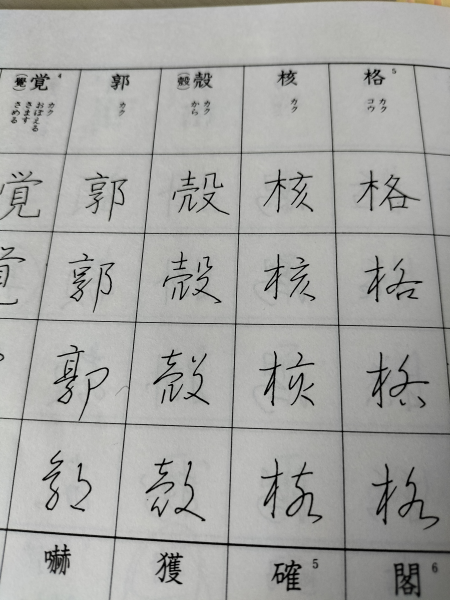 格 5
カク
コウ
核
カク
殻 (殼)
カク
から
郭
カク
覚 (覺) 4
カク
おぼえる
さます
さめる
格 核 殻 郭 覚
格 核 殻 郭 覚
格 核 殻 郭
格 核 殻 郭
閣 6
確 5
獲
嚇